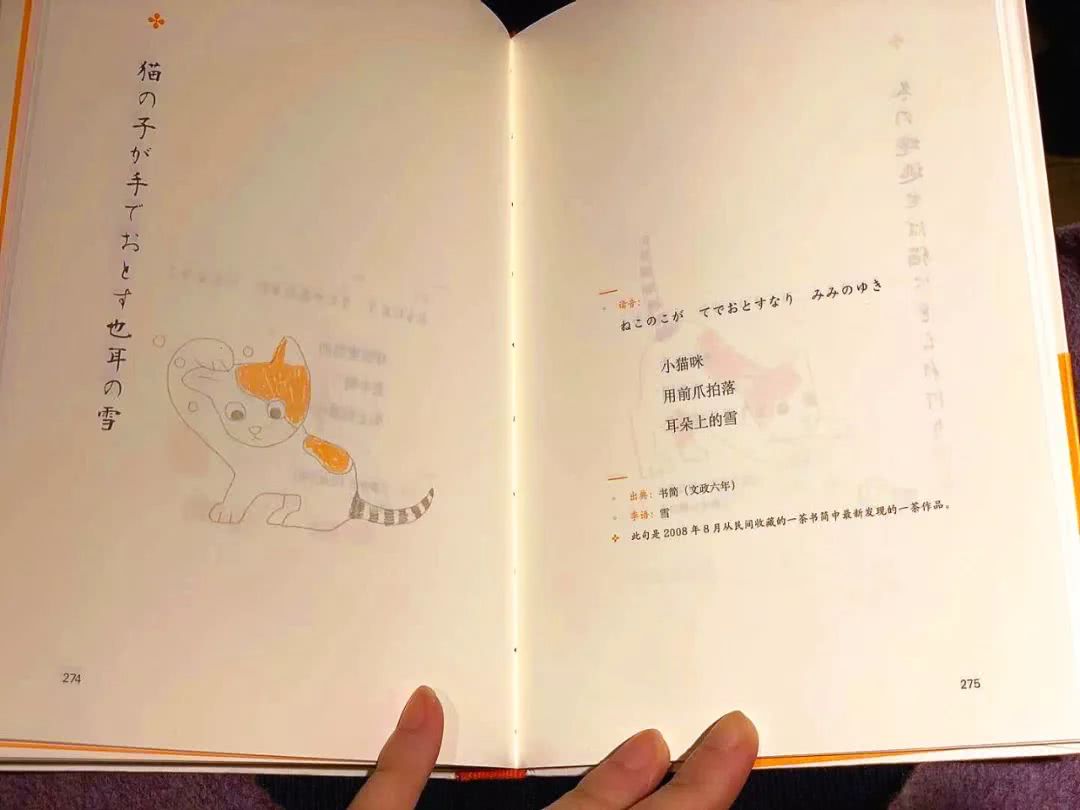 猫の子が手でおとす也耳の雪
274
谐音：
ねこのこが　てでおとすなり　みみのゆき
小猫咪
用前爪拍落
耳朵上的雪
出典：书简（文政六年）
季语：雪
此句是2008年8月从民间收藏的一茶书简中最新发现的一茶作品。
275